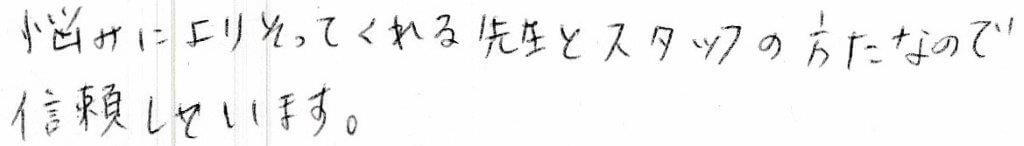 悩みによりそってくれる先生とスタッフの方たなので
信頼しています。